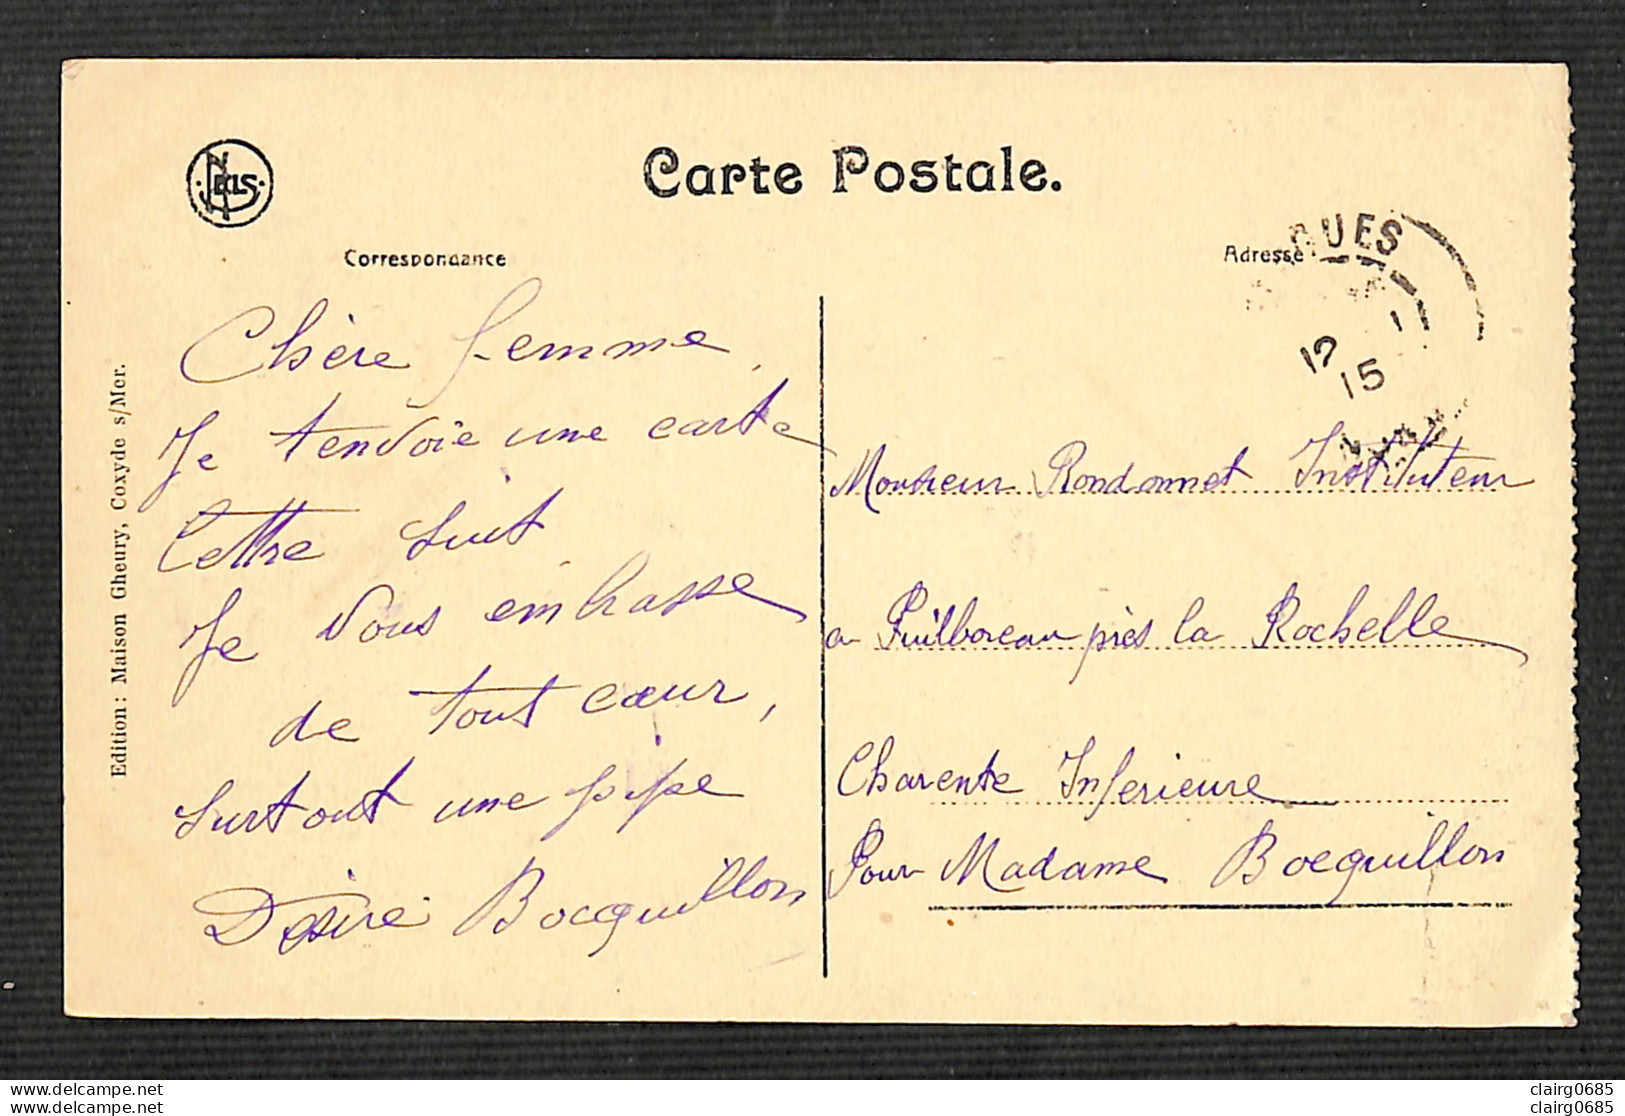 NELS
Carte Postale.
Correspondance
Adresse
QUES
12
15
Edition : Maison Gheury, Coxyde s/Mer.
Chère femme,
Je tenvoie une carte
lettre suit
Je vous embrasse
de tout cœur,
surtout une pipe
Désiré Bocquillon
Monsieur Rondonnet Instituteur
a Puilboreau près la Rochelle
Charente Inferieure
Pour Madame Bocquillon
clairg0685
clairg0685